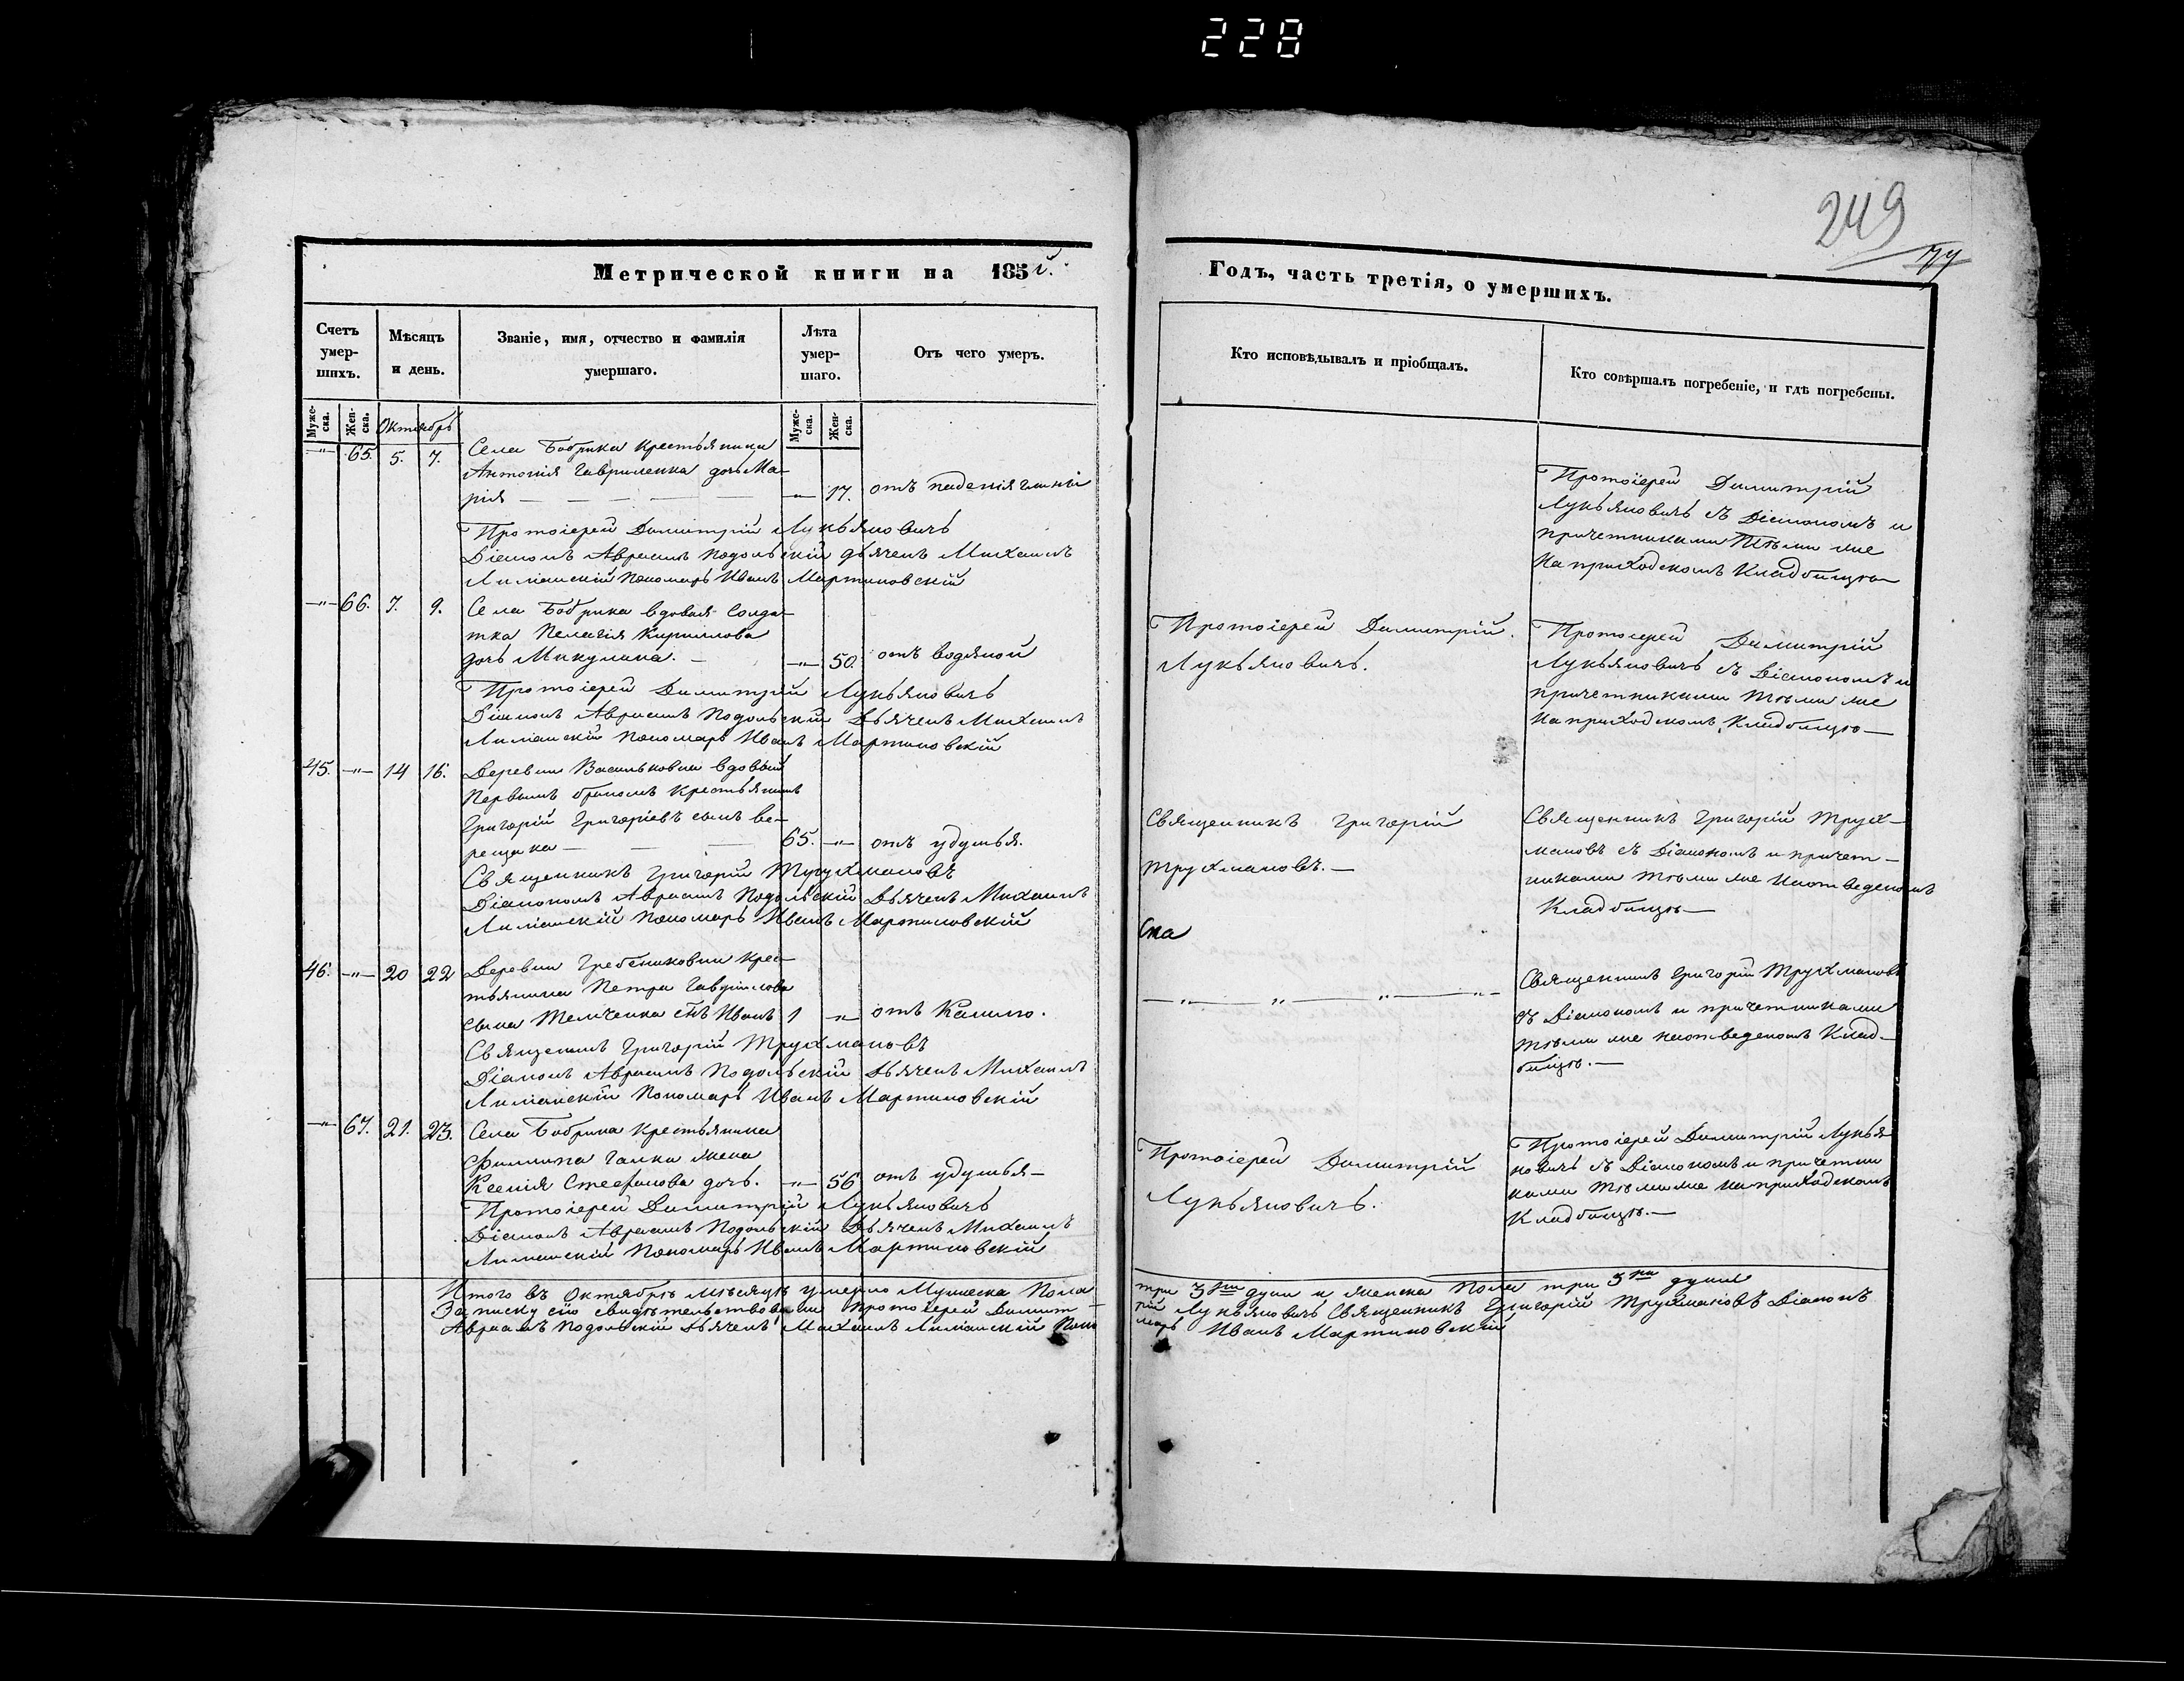 228
249
Метрической книги на 185 й.
Годъ, часть третія, о умершихъ.
Счетъ умер- шихъ.
Мѣсяцъ и день.
Званіе, имя, отчество и фамилія умершаго.
Лѣта умер- шаго.
Отъ чего умеръ.
Кто исповѣдывалъ и пріобщалъ.
Кто совѣршалъ погребеніе, и гдѣ погребены.
Муже- ска.
Жен- ска.
Октябрь
Муже- ска.
Жен- ска.
Села Бобрика крестьянина
—"— 65. 5. 7. Антонія Гавриленка дочь Ма-
рія — — — — —"— 17. отъ паденія
Протоіерей Димитрій Лукьяновичъ
Діаконъ Авраамъ Подольскій дьячекъ Михаилъ
Лиманскій пономарь Иванъ Мартиновскій
Протоіерей Димитрій
Лукьяновичъ съ Діакономъ и
причетниками тѣми же
на приходскомъ кладбищѣ—
—"— 66. 7. 9. Села Бобрика вдовая солда-
тка Пелагія Кириллова
дочь Микулина. — —"— 50. отъ водяной
Протоіерей Димитрій Лукьяновичъ
Діаконъ Авраамъ Подольскій Дьячекъ Михаилъ
Лиманскій пономарь Иванъ Мартиновскій
Протоіерей Димитрій
Лукьяновичъ.
Протоіерей Димитрій
Лукьяновичъ съ Діакономъ и
причетниками тѣми же
на приходскомъ кладбищѣ—
45. —"— 14 16. Деревни Васильковки вдовый
первымъ бракомъ крестьянинъ
Григорій Григоріевъ сынъ Ве-
рещака — — — 65. —"— отъ удушья.
Священникъ Григорій Трухмановъ
Діакономъ Авраамъ Подольскій Дьячекъ Михаилъ
Лиманскій пономарь Иванъ Мартиновскій
Священникъ Григорій
Трухмановъ. —
Ска
Священникъ Григорій Трух-
мановъ съ Діакономъ и причет-
никами тѣми же на отведеномъ
кладбищѣ—
46. —"— 20 22 Деревни Гребениковки крес-
тьянина Петра Гаврилова
сына Темченка снъ Иванъ 1 —"— отъ Кашлю.
Священикъ Григорій Трухмановъ
Діаконъ Авраамъ Подольскій Дьячекъ Михаилъ
Лиманскій пономарь Иванъ Мартиновскій
—"——"——"——"—
Священикъ Григорій Трухмановъ
съ Діакономъ и причетниками
тѣми же на отведеномъ клад-
бищѣ. —
—"— 67. 21. 23. Села Бобрика крестьянина
Филиппа Галки жена
Ксенія Стефанова дочь. —"— 56 отъ удушья—
Протоіерей Димитрій Лукьяновичъ
Діаконъ Авраамъ Подольскій Дьячекъ Михаилъ
Лиманскій пономарь Иванъ Мартиновскій
Протоіерей Димитрій
Лукьяновичъ.
Протоіерей Димитрій Лукья-
новичъ съ Діакономъ и причетни
ками тѣми же на приходскомъ
кладбищѣ. —
Итого въ Октябрѣ мѣсяцѣ умерло Мужеска Пола три 3 души и женска пола три 3 души
Записку сію свидѣтельствовали протоіерей Димит- рій Лукьяновичъ Священникъ Григорій Трухмановъ Діаконъ
Авраамъ Подольскій Дьячекъ Михаилъ Лиманскій Поно марь Иванъ Мартиновскій